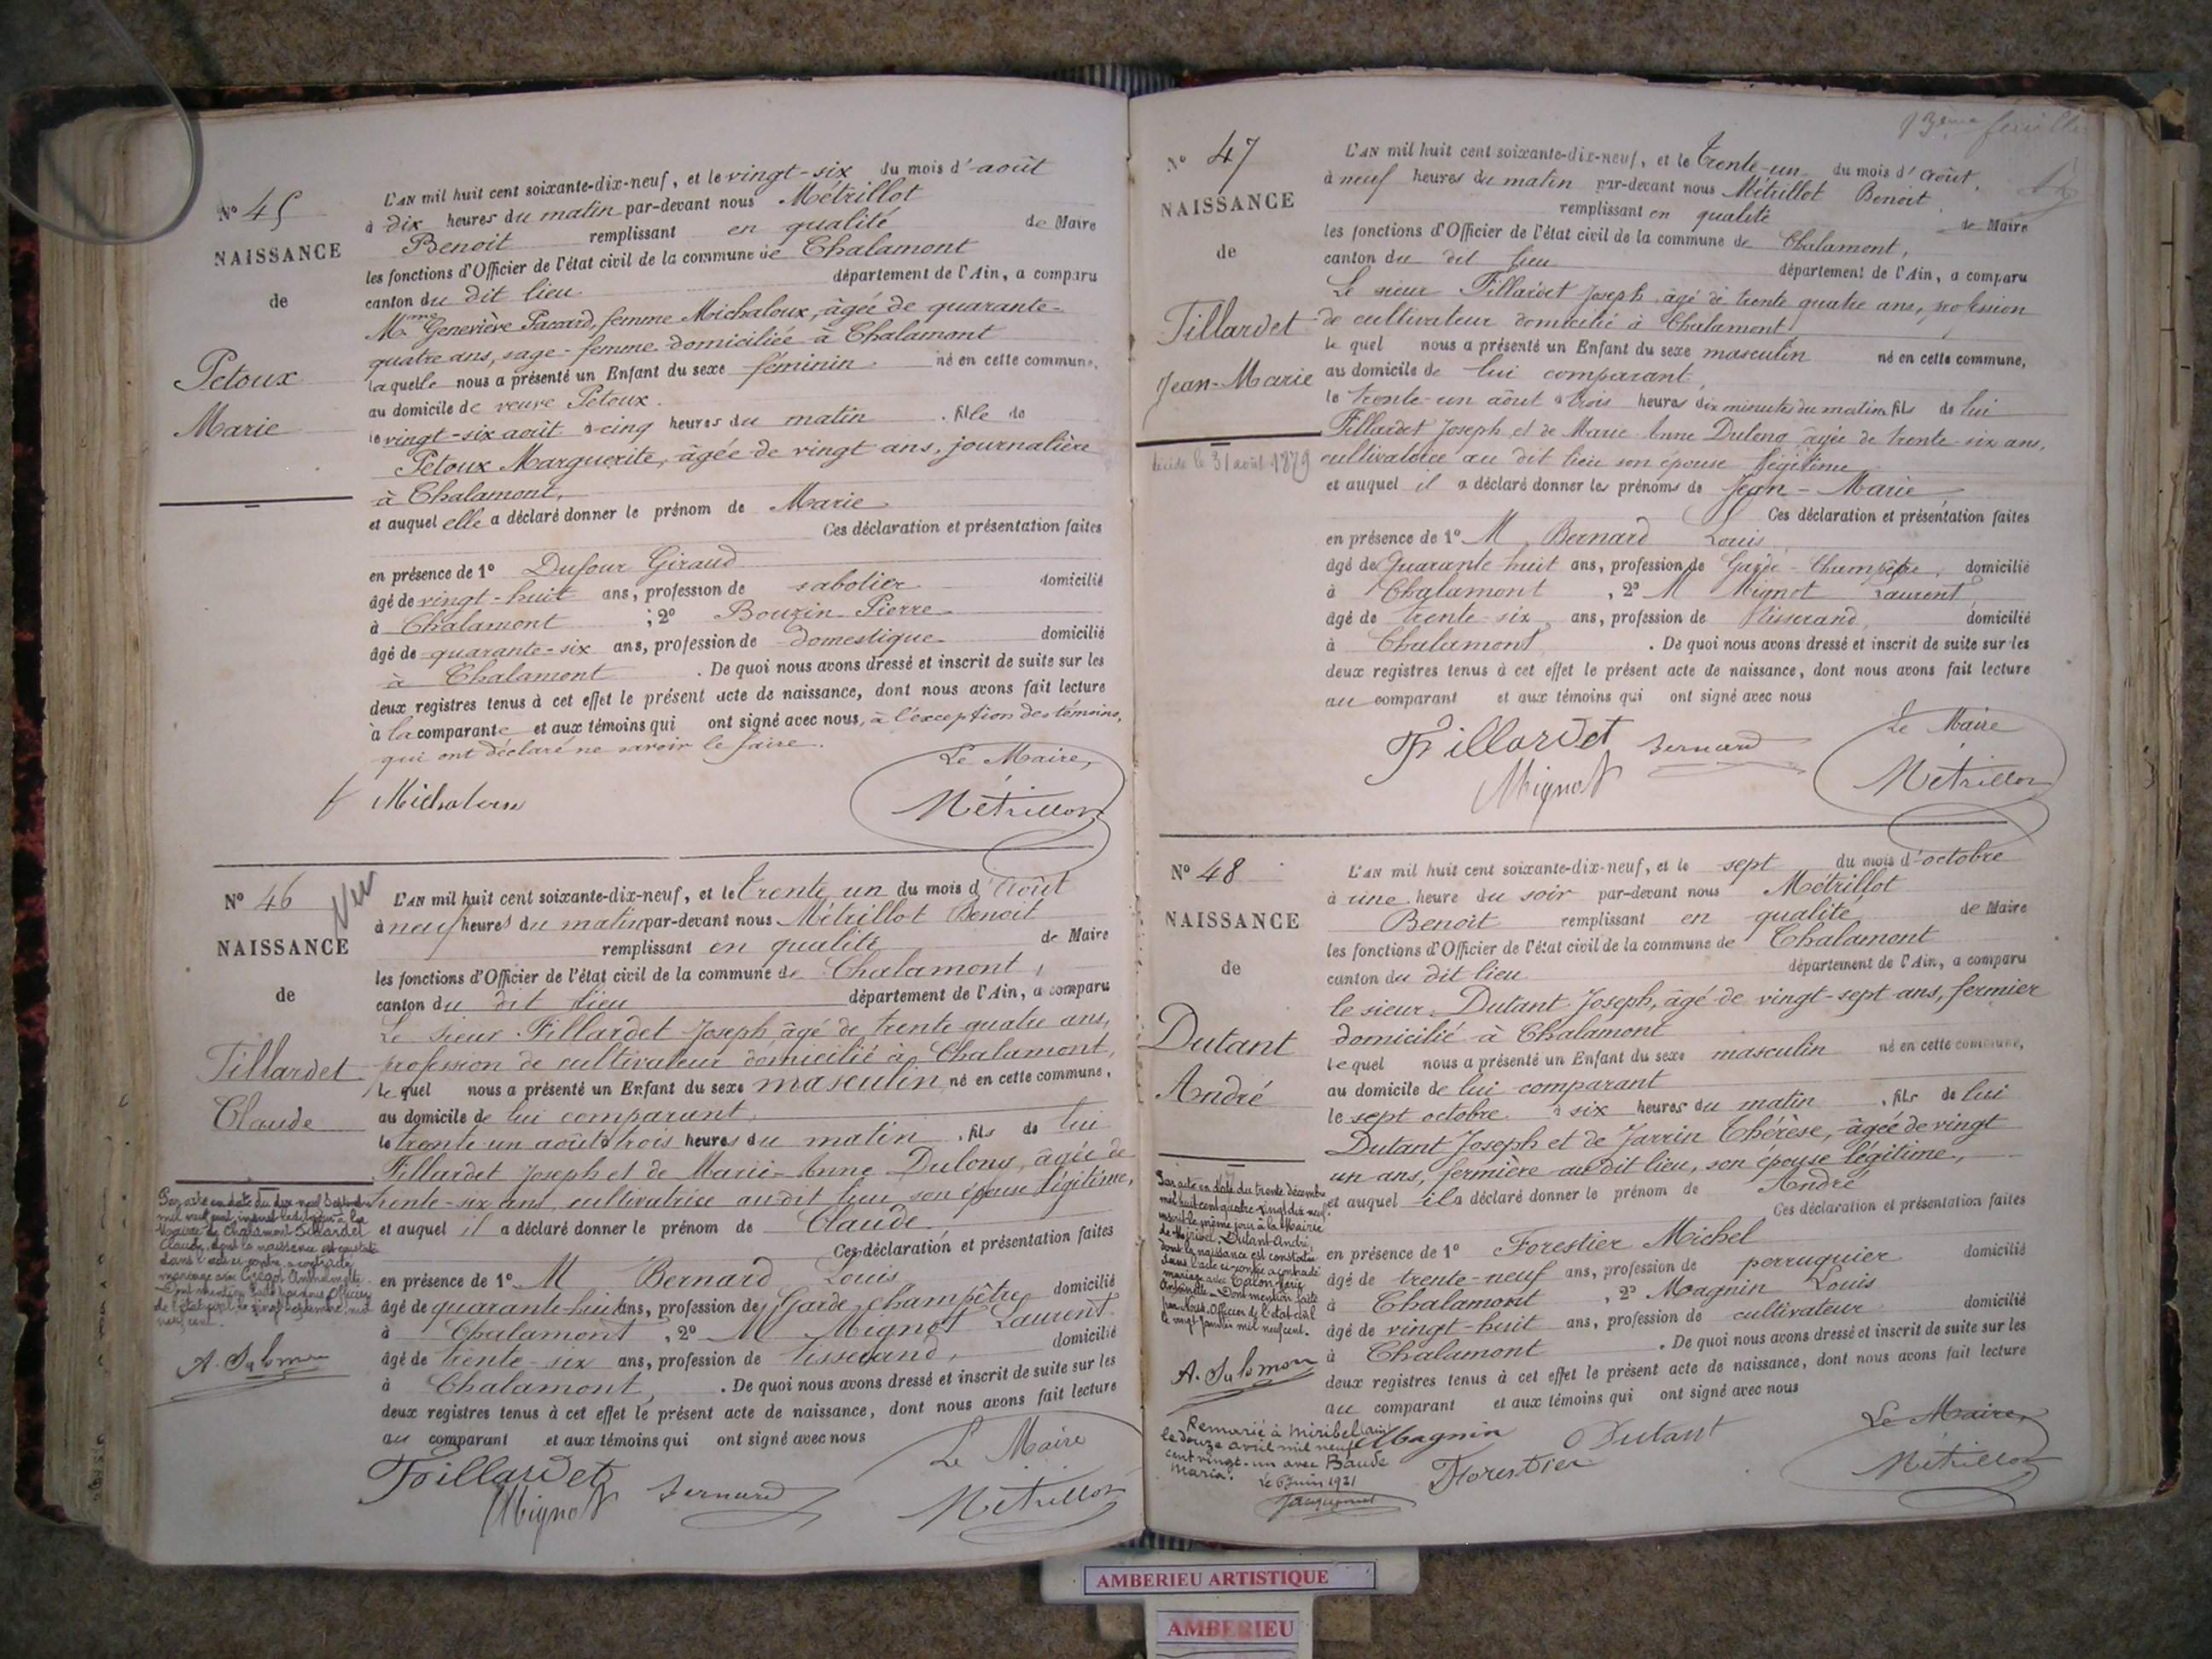 Nº 45
NAISSANCE
de
Petoux
Marie
L'AN mil huit cent soixante-dix-neuf, et le vingt-six du mois d'août
à dix heures du matin par-devant nous Métrillot
Benoit remplissant en qualité de Maire
les fonctions d'Officier de l'état civil de la commune de Chalamont
canton du dit lieu département de l'Ain, a comparu
Mme Geneviève Paccard, femme Michaloux, âgée de quarante-
quatre ans, sage-femme domiciliée à Chalamont
laquelle nous a présenté un Enfant du sexe féminin né en cette commune,
au domicile de veuve Petoux.
le vingt-six août à cinq heures du matin . fille de
Petoux Marguerite, âgée de vingt ans, journalière
à Chalamont,
et auquel elle a déclaré donner le prénom de Marie
Ces déclaration et présentation faites
en présence de 1º Dufour Giraud
âgé de vingt-huit ans, profession de sabotier domicilié
à Chalamont ; 2º Bouzin Pierre
âgé de quarante-six ans, profession de domestique domicilié
à Chalamont . De quoi nous avons dressé et inscrit de suite sur les
deux registres tenus à cet effet le présent acte de naissance, dont nous avons fait lecture
à la comparante et aux témoins qui ont signé avec nous, à l'exception des témoins,
qui ont déclaré ne savoir le faire.
Le Maire,
Métrillot
Nº 46
NAISSANCE
de
Fillardet
Claude
L'AN mil huit cent soixante-dix-neuf, et le trente un du mois d'Août
à neuf heures du matin par-devant nous Métrillot Benoit
remplissant en qualité de Maire
les fonctions d'Officier de l'état civil de la commune de Chalamont,
canton du dit lieu département de l'Ain, a comparu
Le sieur Fillardet Joseph âgé de trente quatre ans,
profession de cultivateur domicilié à Chalamont,
le quel nous a présenté un Enfant du sexe masculin né en cette commune,
au domicile de lui comparant,
le trente-un août à trois heures du matin , fils de lui
Fillardet Joseph et de Marie-Anne Dulong, âgée de
trente-six ans, cultivatrice au dit lieu son épouse légitime,
et auquel il a déclaré donner le prénom de Claude
Ces déclaration et présentation faites
en présence de 1º M Bernard Louis
âgé de quarante-huit ans, profession de Garde champêtre domicilié
à Chalamont , 2º M Mignot Laurent
âgé de trente-six ans, profession de tisserand, domicilié
à Chalamont, . De quoi nous avons dressé et inscrit de suite sur les
deux registres tenus à cet effet le présent acte de naissance, dont nous avons fait lecture
au comparant et aux témoins qui ont signé avec nous
Le Maire
Fillardet
Mignot Bernard Métrillot
Par acte en date du dix neuf Septembre
mil neuf cent, inscrit
Mairie de Chalamont Fillardet
Claude, dont la naissance est constatée
dans l'acte ci-contre a contracté
mariage avec
Dont mention faite par nous Officier
de l'état civil le vingt Septembre mil
neuf cent.
A. Salomon
Nº 47
NAISSANCE
de
Fillardet
Jean-Marie
décédé le 31 août 1879
13ème feuille
L'AN mil huit cent soixante-dix-neuf, et le trente-un du mois d'Août,
à neuf heures du matin par-devant nous Métrillot Benoit
remplissant en qualité de Maire
les fonctions d'Officier de l'état civil de la commune de Chalamont,
canton du dit lieu département de l'Ain, a comparu
Le sieur Fillardet Joseph, âgé de trente quatre ans, profession
de cultivateur domicilié à Chalamont
le quel nous a présenté un Enfant du sexe masculin né en cette commune,
au domicile de lui comparant,
le trente-un août à trois heures dix minutes du matin, fils de lui
Fillardet Joseph et de Marie-Anne Dulong âgée de trente-six ans,
cultivatrice au dit lieu son épouse légitime
et auquel il a déclaré donner les prénoms de Jean-Marie
Ces déclaration et présentation faites
en présence de 1º M Bernard Louis
âgé de Quarante huit ans, profession de Garde-Champêtre, domicilié
à Chalamont , 2º M Mignot Laurent
âgé de trente-six ans, profession de Tisserand, domicilié
à Chalamont . De quoi nous avons dressé et inscrit de suite sur les
deux registres tenus à cet effet le présent acte de naissance, dont nous avons fait lecture
au comparant et aux témoins qui ont signé avec nous
Le Maire
Fillardet Bernard
Mignot Métrillot
Nº 48
NAISSANCE
de
Dutant
André
L'AN mil huit cent soixante-dix-neuf, et le sept du mois d'octobre
à une heure du soir par-devant nous Métrillot
Benoit remplissant en qualité de Maire
les fonctions d'Officier de l'état civil de la commune de Chalamont
canton du dit lieu département de l'Ain, a comparu
le sieur Dutant Joseph, âgé de vingt-sept ans, fermier
domicilié à Chalamont
lequel nous a présenté un Enfant du sexe masculin né en cette commune,
au domicile de lui comparant
le sept octobre à six heures du matin , fils de lui
Dutant Joseph et de Jarrin Thérèse, âgée de vingt
un ans, fermière au dit lieu, son épouse légitime,
et auquel il a déclaré donner le prénom de André
Ces déclaration et présentation faites
en présence de 1º Forestier Michel
âgé de trente-neuf ans, profession de perruquier domicilié
à Chalamont , 2º Magnin Louis
âgé de vingt-huit ans, profession de cultivateur domicilié
à Chalamont . De quoi nous avons dressé et inscrit de suite sur les
deux registres tenus à cet effet le présent acte de naissance, dont nous avons fait lecture
au comparant et aux témoins qui ont signé avec nous
Le Maire,
Magnin Dutant
Forestier Métrillot
Par acte en date du trente décembre
mil huit cent quatre-vingt dix neuf
inscrit le même jour à la Mairie
de Miribel, Dutant André,
dont la naissance est constatée
dans l'acte ci-contre a contracté
mariage avec Calon Marie
Antoinette. Dont mention faite
par Nous, Officier de l'état civil
le vingt Janvier mil neuf cent.
A. Salomon
Remarié à Miribel (ain)
le douze avril mil neuf
cent vingt-un avec Baude
Maria.
Le 6 Juin 1921
AMBERIEU ARTISTIQUE
AMBERIEU